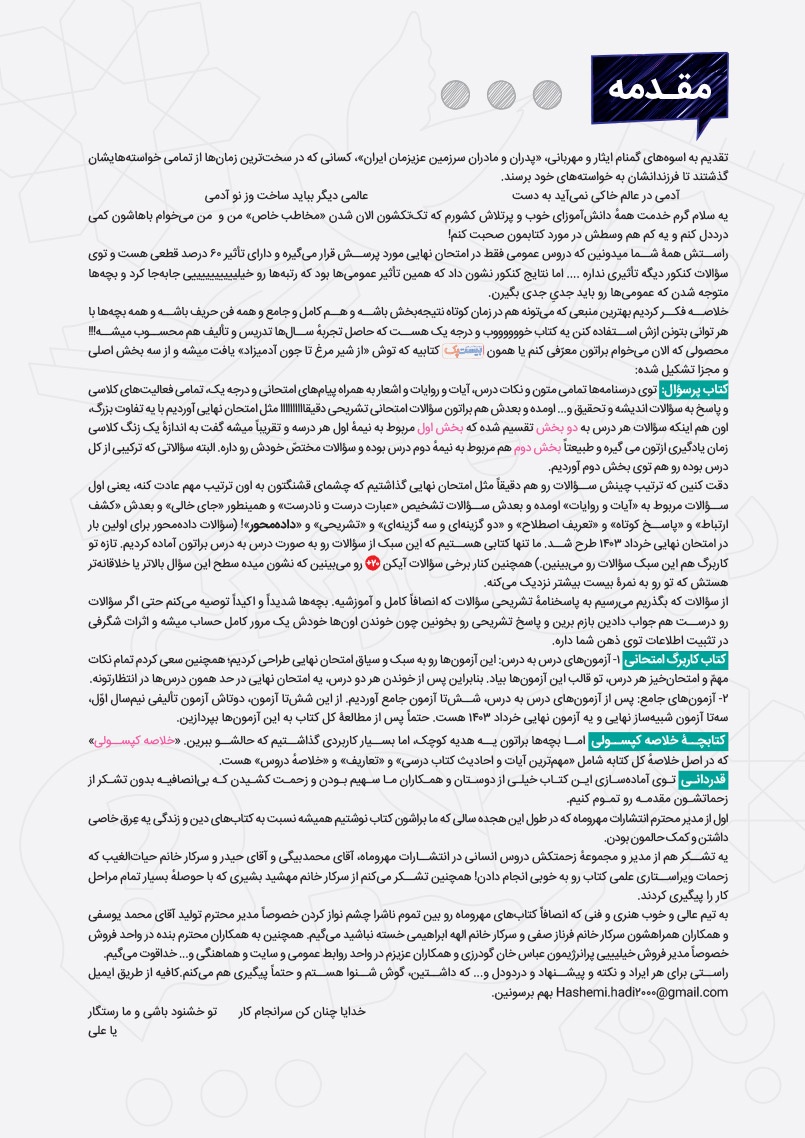 مقـدمه
تقدیم به اسوه‌های گمنام ایثار و مهربانی، «پدران و مادران سرزمین عزیزمان ایران»، کسانی که در سخت‌ترین زمان‌ها از تمامی خواسته‌هایشان
گذشتند تا فرزندانشان به خواسته‌های خود برسند.
آدمی در عالم خاکی نمی‌آید به دست عالمی دیگر بباید ساخت وز نو آدمی
یه سلام گرم خدمت همهٔ دانش‌آموزای خوب و پرتلاش کشورم که تک‌تکشون الان شدن «مخاطب خاص» من و من می‌خوام باهاشون کمی
درددل کنم و یه کم هم وسطش در مورد کتابمون صحبت کنم!
راســتش همهٔ شــما میدونین که دروس عمومی فقط در امتحان نهایی مورد پرســش قرار می‌گیره و دارای تأثیر ۶۰ درصد قطعی هست و توی
سؤالات کنکور دیگه تأثیری نداره .... اما نتایج کنکور نشون داد که همین تأثیر عمومی‌ها بود که رتبه‌ها رو خیلیییییییییی جابه‌جا کرد و بچه‌ها
متوجه شدن که عمومی‌ها رو باید جدیِ جدی بگیرن.
خلاصــه فکــر کردیم بهترین منبعی که می‌تونه هم در زمان کوتاه نتیجه‌بخش باشــه و هــم کامل و جامع و همه فن حریف باشــه و همه بچه‌ها با
هر توانی بتونن ازش اســتفاده کنن یه کتاب خووووووب و درجه یک هســت که حاصل تجربهٔ ســال‌ها تدریس و تألیف هم محســوب میشــه!!!
محصولی که الان می‌خوام براتون معرّفی کنم یا همون بیست‌پک کتابیه که توش «از شیر مرغ تا جون آدمیزاد» یافت میشه و از سه بخش اصلی
و مجزا تشکیل شده:
کتاب پرسؤال: توی درسنامه‌ها تمامی متون و نکات درس، آیات و روایات و اشعار به همراه پیام‌های امتحانی و درجه یک، تمامی فعالیت‌های کلاسی
و پاسخ به سؤالات اندیشه و تحقیق و... اومده و بعدش هم براتون سؤالات امتحانی تشریحی دقیقاااااااااا مثل امتحان نهایی آوردیم با یه تفاوت بزرگ،
اون هم اینکه سؤالات هر درس به دو بخش تقسیم شده که بخش اول مربوط به نیمهٔ اول هر درسه و تقریباً میشه گفت به اندازهٔ یک زنگ کلاسی
زمان یادگیری ازتون می گیره و طبیعتاً بخش دوم هم مربوط به نیمهٔ دوم درس بوده و سؤالات مختصّ خودش رو داره. البته سؤالاتی که ترکیبی از کل
درس بوده رو هم توی بخش دوم آوردیم.
دقت کنین که ترتیب چینش ســؤالات رو هم دقیقاً مثل امتحان نهایی گذاشتیم که چشمای قشنگتون به اون ترتیب مهم عادت کنه، یعنی اول
ســؤالات مربوط به «آیات و روایات» اومده و بعدش ســؤالات تشخیص «عبارت درست و نادرست» و همینطور «جای خالی» و بعدش «کشف
ارتباط» و «پاســخ کوتاه» و «تعریف اصطلاح» و «دو گزینه‌ای و سه گزینه‌ای» و «تشریحی» و «داده‌محور»! (سؤالات داده‌محور برای اولین بار
در امتحان نهایی خرداد ۱۴۰۳ طرح شــد. ما تنها کتابی هســتیم که این سبک از سؤالات رو به صورت درس به درس براتون آماده کردیم. تازه تو
کاربرگ هم این سبک سؤالات رو می‌بینین.) همچنین کنار برخی سؤالات آیکن +۲۰ رو می‌بینین که نشون میده سطح این سؤال بالاتر یا خلاقانه‌تر
هستش که تو رو به نمرهٔ بیست بیشتر نزدیک می‌کنه.
از سؤالات که بگذریم می‌رسیم به پاسخنامهٔ تشریحی سؤالات که انصافاً کامل و آموزشیه. بچه‌ها شدیداً و اکیداً توصیه می‌کنم حتی اگر سؤالات
رو درســت هم جواب دادین بازم برین و پاسخ تشریحی رو بخونین چون خوندن اون‌ها خودش یک مرور کامل حساب میشه و اثرات شگرفی
در تثبیت اطلاعات توی ذهن شما داره.
کتاب کاربرگ امتحانی ۱- آزمون‌های درس به درس: این آزمون‌ها رو به سبک و سیاق امتحان نهایی طراحی کردیم؛ همچنین سعی کردم تمام نکات
مهمّ و امتحان‌خیز هر درس، تو قالب این آزمون‌ها بیاد. بنابراین پس از خوندن هر دو درس، یه امتحان نهایی در حد همون درس‌ها در انتظارتونه.
۲- آزمون‌های جامع: پس از آزمون‌های درس به درس، شــش‌تا آزمون جامع آوردیم. از این شش‌تا آزمون، دوتاش آزمون تألیفی نیم‌سال اوّل،
سه‌تا آزمون شبیه‌ساز نهایی و یه آزمون نهایی خرداد ۱۴۰۳ هست. حتماً پس از مطالعهٔ کل کتاب به این آزمون‌ها بپردازین.
کتابچــهٔ خلاصه کپســولی امــا بچه‌ها براتون یــه هدیه کوچک، اما بســیار کاربردی گذاشــتیم که حالشــو ببرین. «خلاصه کپســولی»
که در اصل خلاصهٔ کل کتابه شامل «مهم‌ترین آیات و احادیث کتاب درسی» و «تعاریف» و «خلاصهٔ دروس» هست.
قدردانـی تـوی آماده‌سـازی ایـن کتـاب خیلـی از دوسـتان و همکـاران مـا سـهیم بـودن و زحمـت کشـیدن کـه بی‌انصافیـه بدون تشـکر از
زحماتشـون مقدمـه رو تمـوم کنیم.
اول از مدیر محترم انتشارات مهروماه که در طول این هجده سالی که ما براشون کتاب نوشتیم همیشه نسبت به کتاب‌های دین و زندگی یه عِرق خاصی
داشتن و کمک حالمون بودن.
یه تشــکر هم از مدیر و مجموعهٔ زحمتکش دروس انسانی در انتشــارات مهروماه، آقای محمدبیگی و آقای حیدر و سرکار خانم حیات‌الغیب که
زحمات ویراســتاری علمی کتاب رو به خوبی انجام دادن! همچنین تشــکر می‌کنم از سرکار خانم مهشید بشیری که با حوصلهٔ بسیار تمام مراحل
کار را پیگیری کردند.
به تیم عالی و خوب هنری و فنی که انصافاً کتاب‌های مهروماه رو بین تموم ناشرا چشم نواز کردن خصوصاً مدیر محترم تولید آقای محمد یوسفی
و همکاران همراهشون سرکار خانم فرناز صفی و سرکار خانم الهه ابراهیمی خسته نباشید می‌گیم. همچنین به همکاران محترم بنده در واحد فروش
خصوصاً مدیر فروش خیلیییی پرانرژیمون عباس خان گودرزی و همکاران عزیزم در واحد روابط عمومی و سایت و هماهنگی و... خداقوت می‌گیم.
راســتی برای هر ایراد و نکته و پیشــنهاد و دردودل و... که داشــتین، گوش شــنوا هســتم و حتماً پیگیری هم می‌کنم.کافیه از طریق ایمیل
Hashemi.hadi2000@gmail.com بهم برسونین.
خدایا چنان کن سرانجام کار تو خشنود باشی و ما رستگار
یا علی